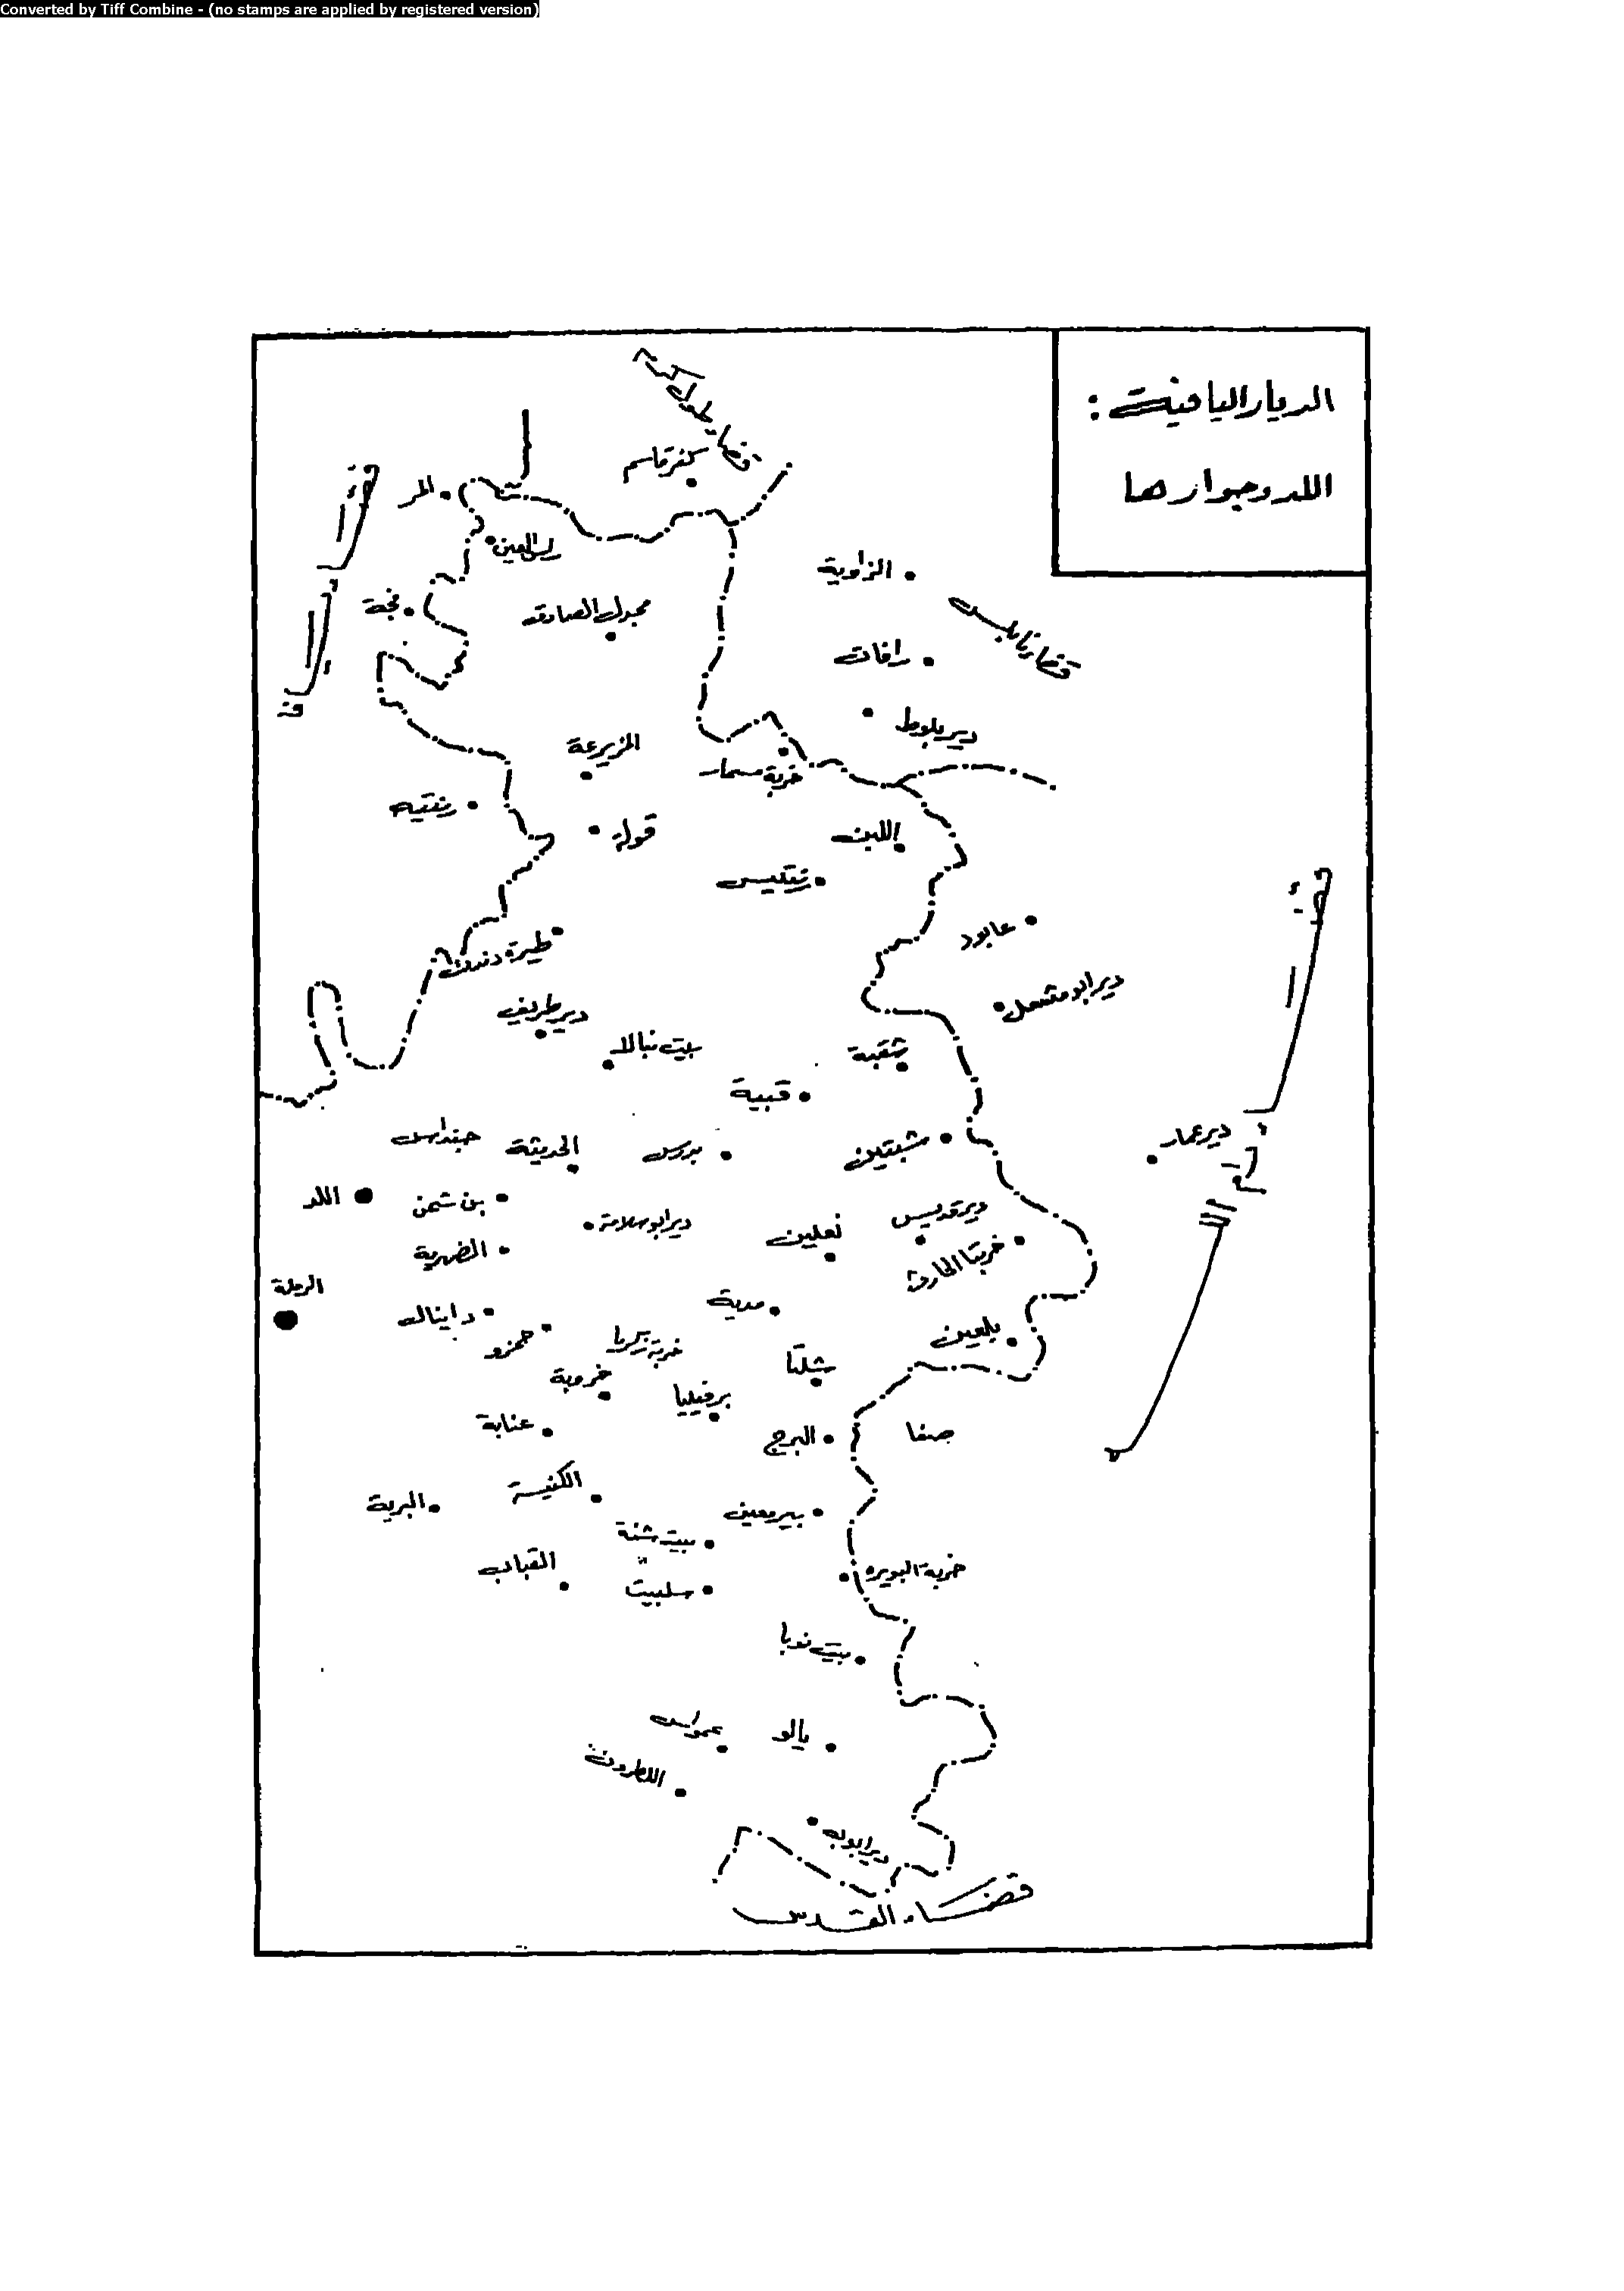 Converted by Tiff Combine - (no stamps are applied by registered version)
الديار اليافية :
اللد وجوارها
قضاء طولكرم
كفر قاسم
المر
راس العين
الزاوية
قضاء نابلس
نجمة
مجدل الصادق
رافات
قضاء يافا
دير بلوط
المزيرعة
خربة سمار
رنتيه
قولة
اللبن
رنتيس
عابود
طيرة دندن
دير ابو مشعل
دير طريف
بيت نبالا
شقبة
قبية
جنداس
الحديثة
بدرس
شبتين
دير عمار
قضاء رام الله
اللد
بن شمن
دير ابو سلامة
نعلين
دير قديس
الضهرية
خربتا الحارث
الرملة
دانيال
جمزو
مدية
خربة زكريا
بلعين
خروبة
شلتا
برفيليا
عنابة
البرج
صفا
الكنيسة
البرية
بيرمعين
بيت شنة
القباب
سلبيت
خربة البويره
بيت نوبا
عمواس
يالو
اللطرون
دير ايوب
قضاء القدس